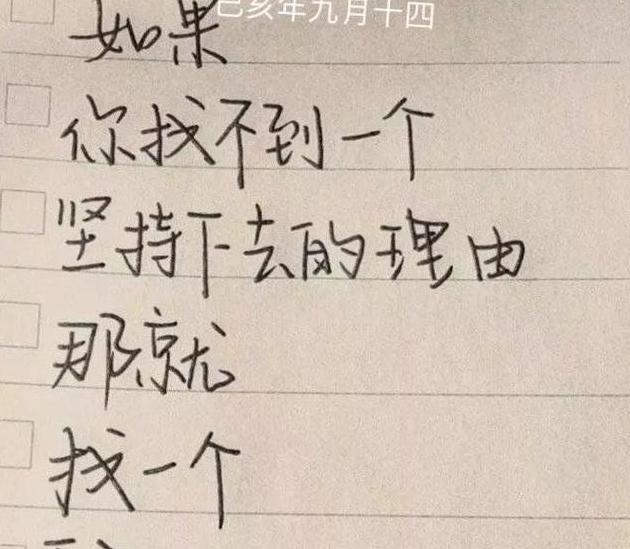 己亥年九月十四
如果
你找不到一个
坚持下去的理由
那就
找一个